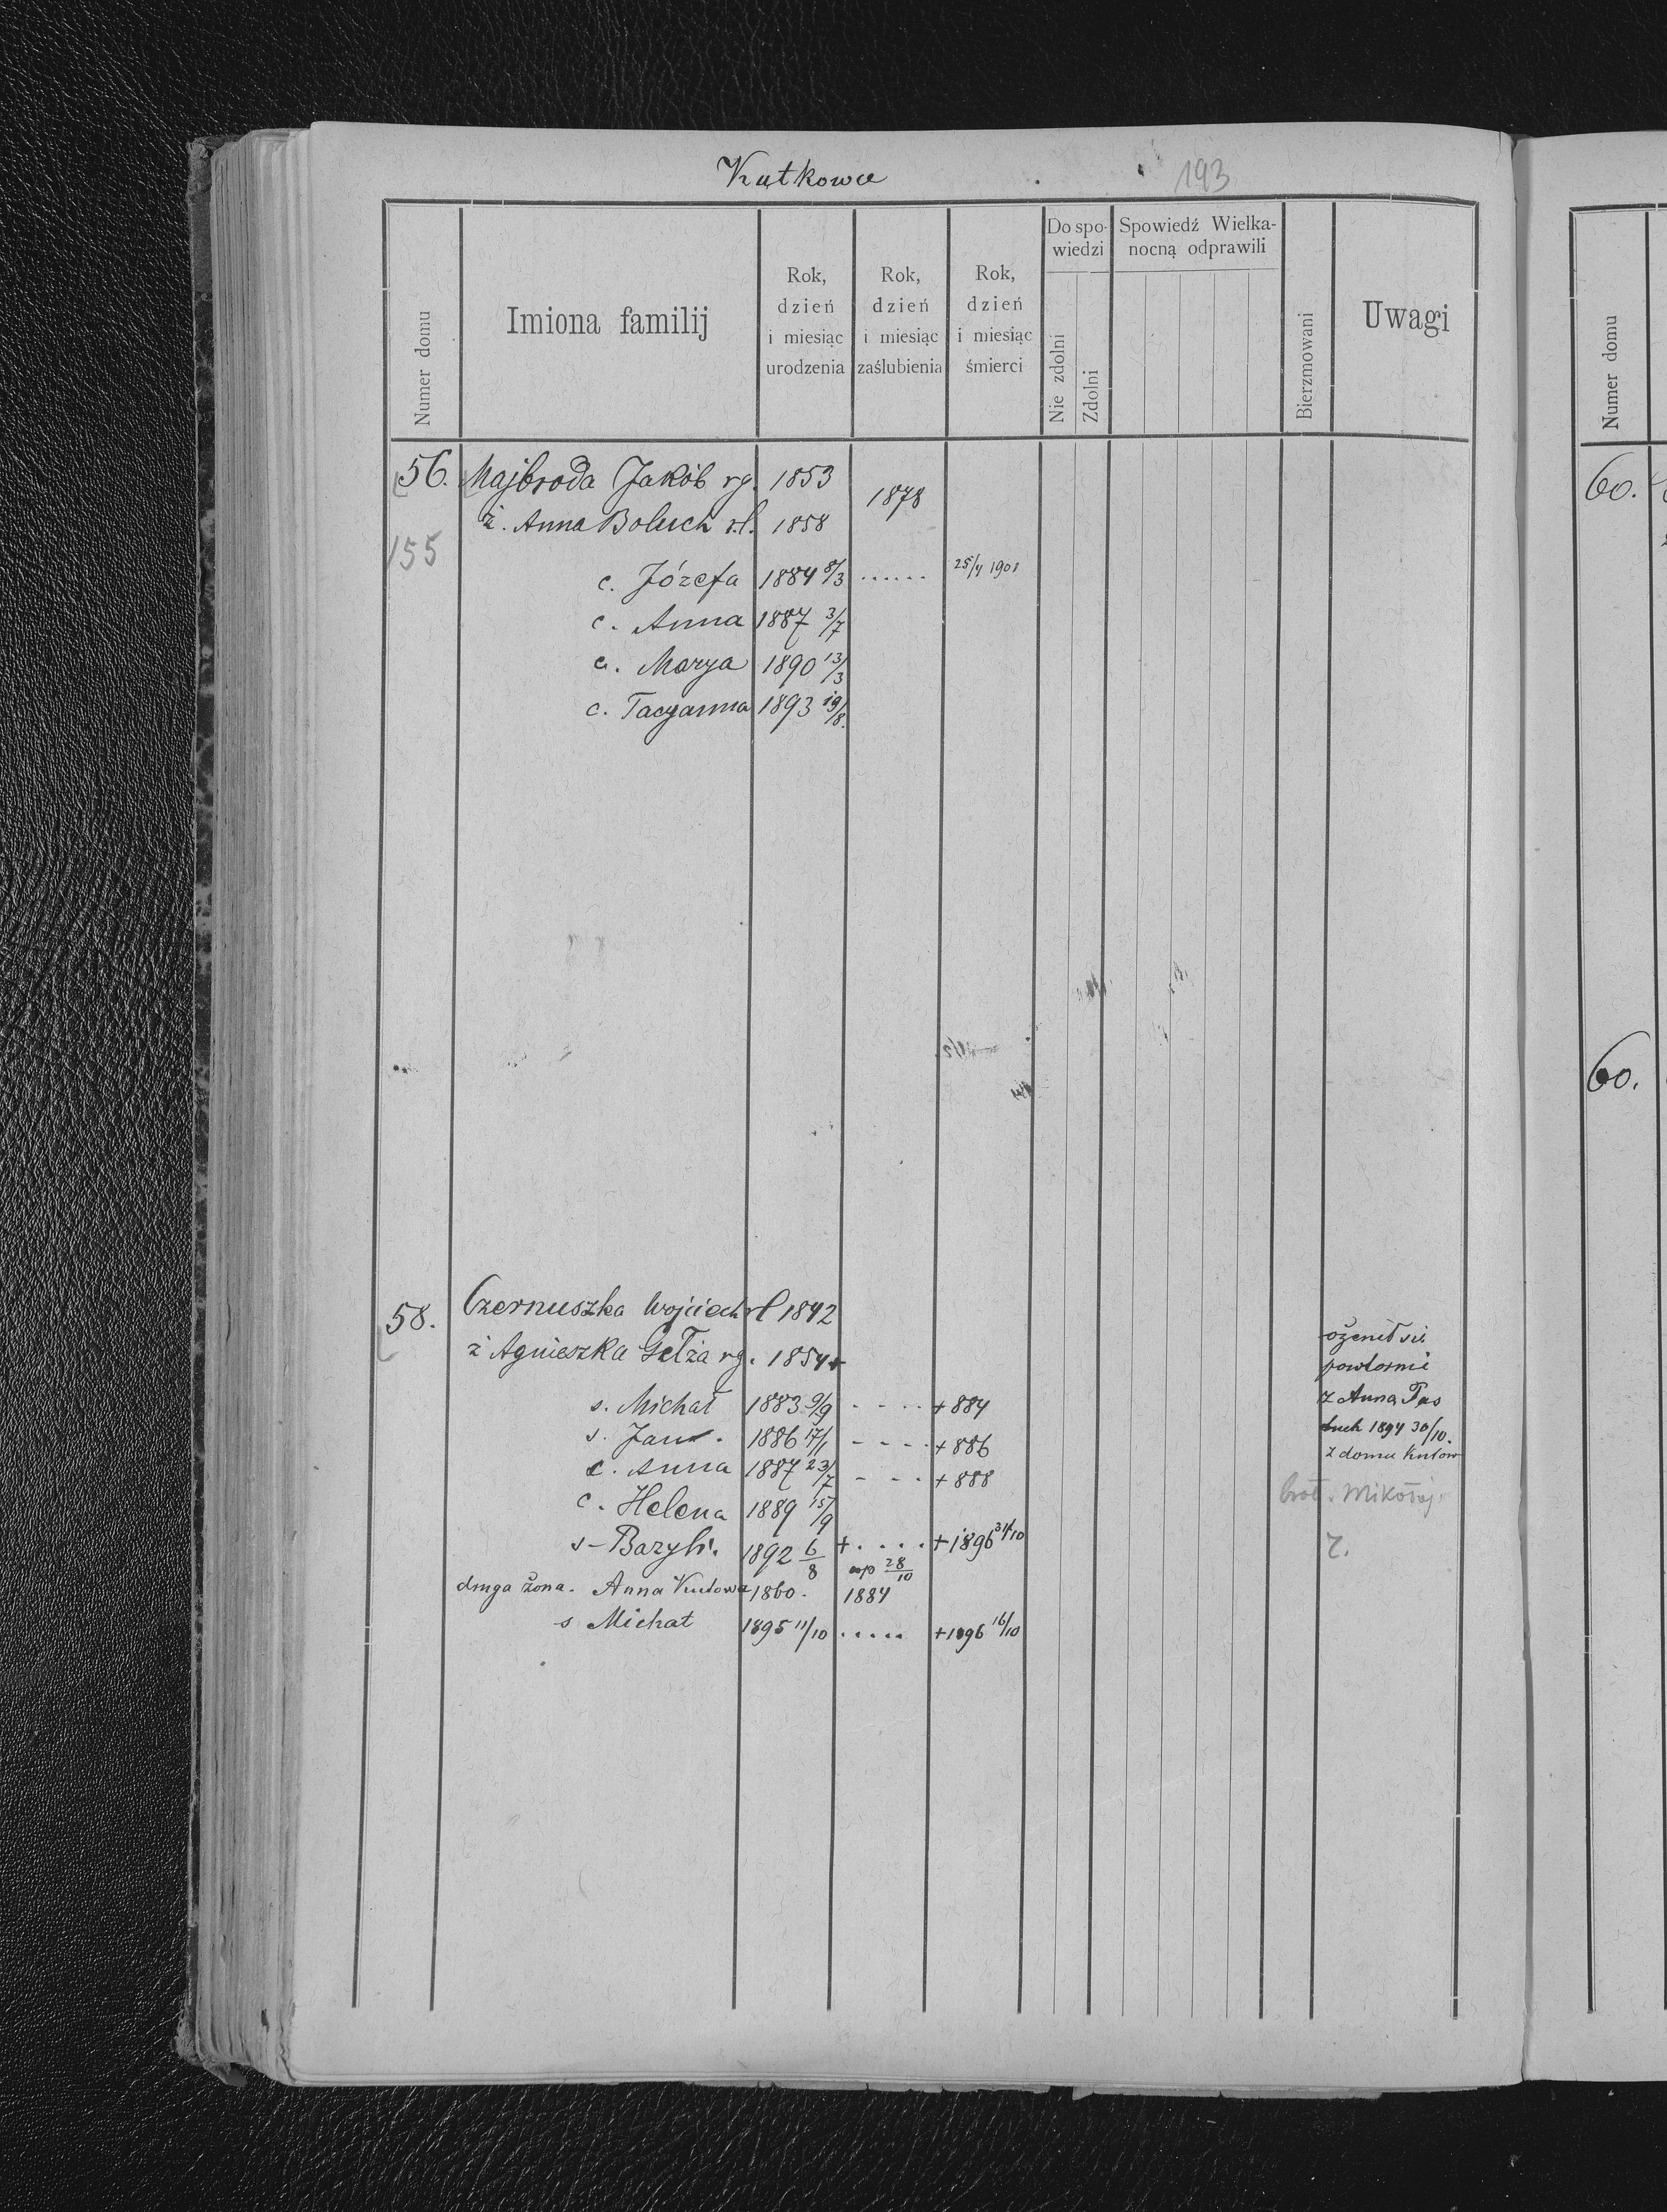 Kutkowce 193
Numer domu
Imiona familij
Rok, dzień i miesiąc urodzenia
Rok, dzień i miesiąc zaślubienia
Rok, dzień i miesiąc śmierci
Do spowiedzi
Nie zdolni
Zdolni
Spowiedź Wielkanocną odprawili
Bierzmowani
Uwagi
Numer domu
56. Majbroda Jakób rg. 1853
1878
ż. Anna Boluch rl. 1858
155
c. Józefa 1884 8/3 ...... 25/4 1901
c. Anna 1887 3/7
c. Marya 1890 13/3
c. Tacyanna 1893 19/8.
60.
60.
58. Czernuszka Wojciech rl 1842
ż Agnieszka Gełza rg. 1854 +
ożenił się
powtornie
z Anną Pas
tuch 1894 30/10.
z domu Kutów
s. Michał 1883 9/9 - - - - + 884
s. Jan. 1886 17/1 - - - - + 886
c. Anna 1887 23/7 - - - + 888
c. Helena 1889 15/9
brat. Mikołaj
s - Bazyli. 1892 6/8 + . . . . + 1896 31/10
28/10
druga żona. Anna Kutowa 1860. 1884
s Michał 1895 11/10 ..... + 1896 16/10